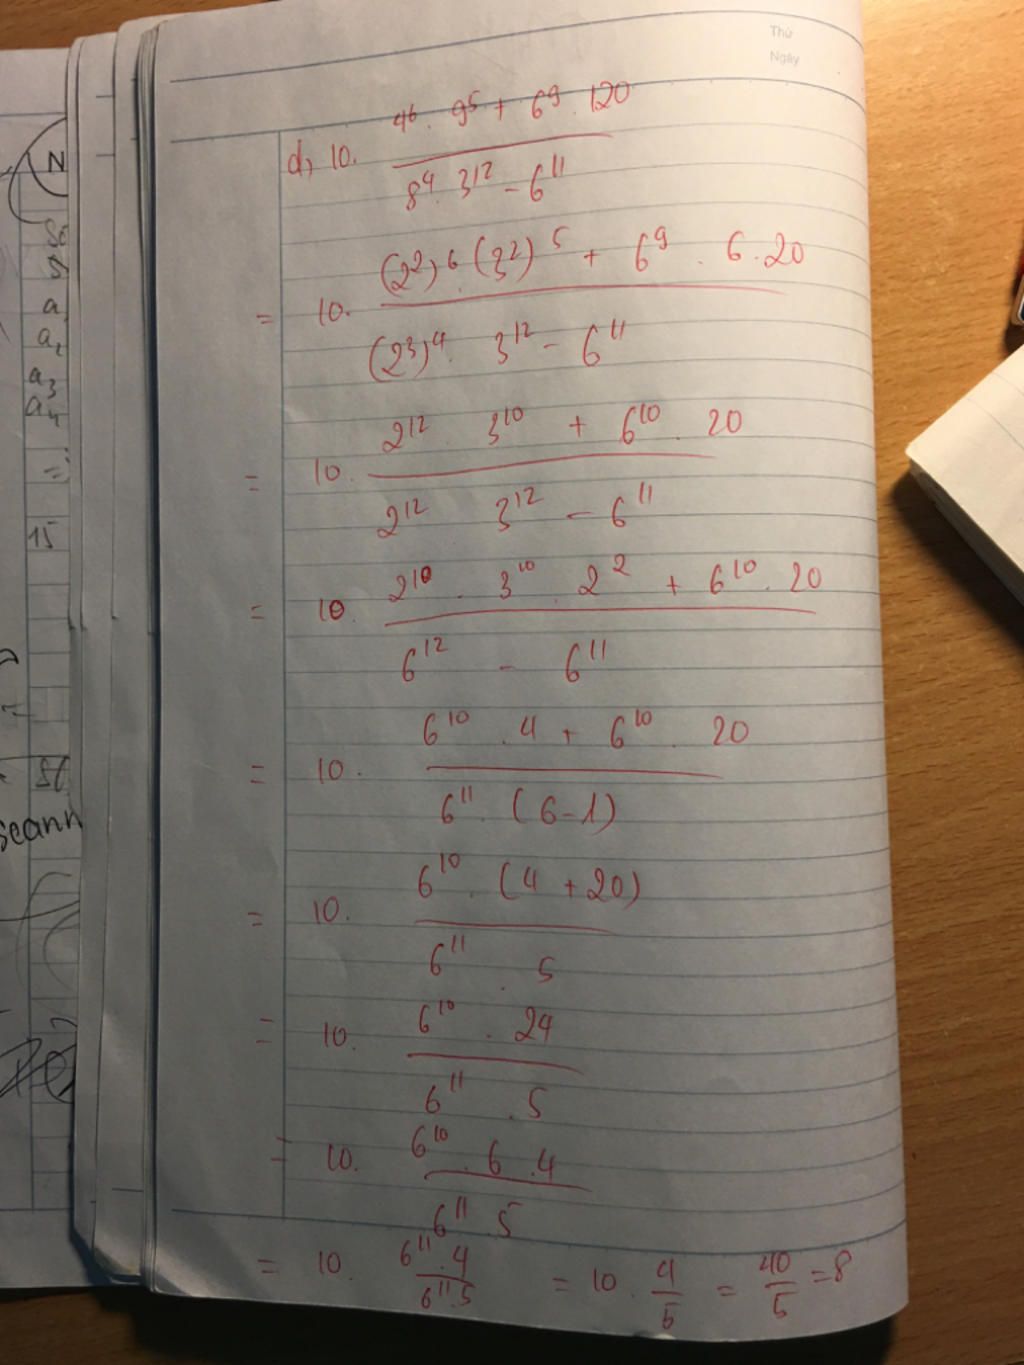 Thứ
Ngày
d, 10. (4⁶ . 9⁵ + 6⁹ . 120) / (8⁴ . 3¹² - 6¹¹)
= 10. ((2²)⁶ . (3²)⁵ + 6⁹ . 6 . 20) / ((2³)⁴ . 3¹² - 6¹¹)
= 10. (2¹² . 3¹⁰ + 6¹⁰ . 20) / (2¹² 3¹² - 6¹¹)
= 10. (2¹⁰ . 3¹⁰ . 2² + 6¹⁰ . 20) / (6¹² - 6¹¹)
= 10. (6¹⁰ . 4 + 6¹⁰ . 20) / (6¹¹ . (6-1))
= 10. (6¹⁰ . (4 + 20)) / (6¹¹ . 5)
= 10. (6¹⁰ . 24) / (6¹¹ . 5)
= 10. (6¹⁰ . 6 . 4) / (6¹¹ . 5)
= 10. (6¹¹ . 4) / (6¹¹ . 5) = 10 . 4/5 = 40/5 = 8
N
a
a₂
a₃
a₄
=
15